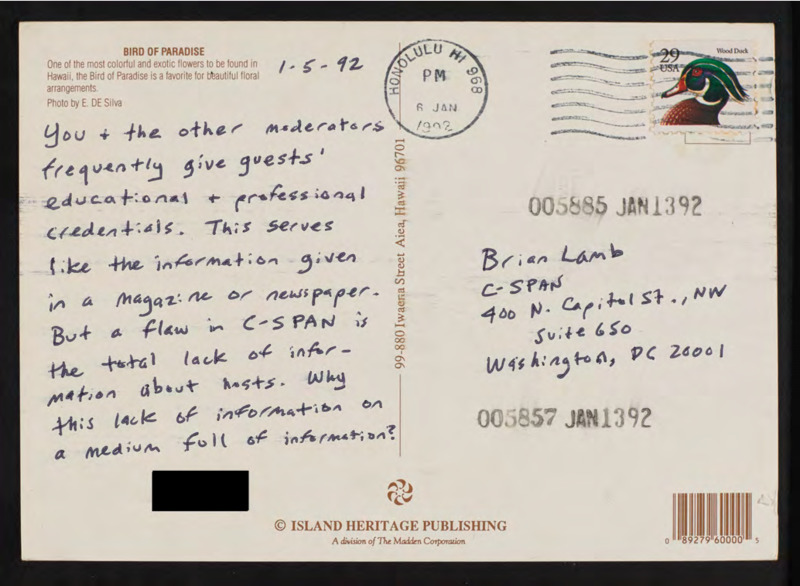 BIRD OF PARADISE
One of the most colorful and exotic flowers to be found in
Hawaii, the Bird of Paradise is a favorite for beautiful floral
arrangements.
Photo by E. DE Silva
1-5-92
You + the other moderators
frequently give guests'
educational + professional
credentials. This serves
like the information given
in a magazine or newspaper.
But a flaw in C-SPAN is
the total lack of infor-
mation about hosts. Why
this lack of information on
a medium full of information?
HONOLULU HI 968
PM
6 JAN
1992
29
USA
Wood Duck
99-880 Iwaena Street Aiea, Hawaii 96701
005885 JAN1392
Brian Lamb
C-SPAN
400 N. Capitol St., NW
Suite 650
Washington, DC 20001
005857 JAN1392
© ISLAND HERITAGE PUBLISHING
A division of The Madden Corporation
0 89279 60000 5